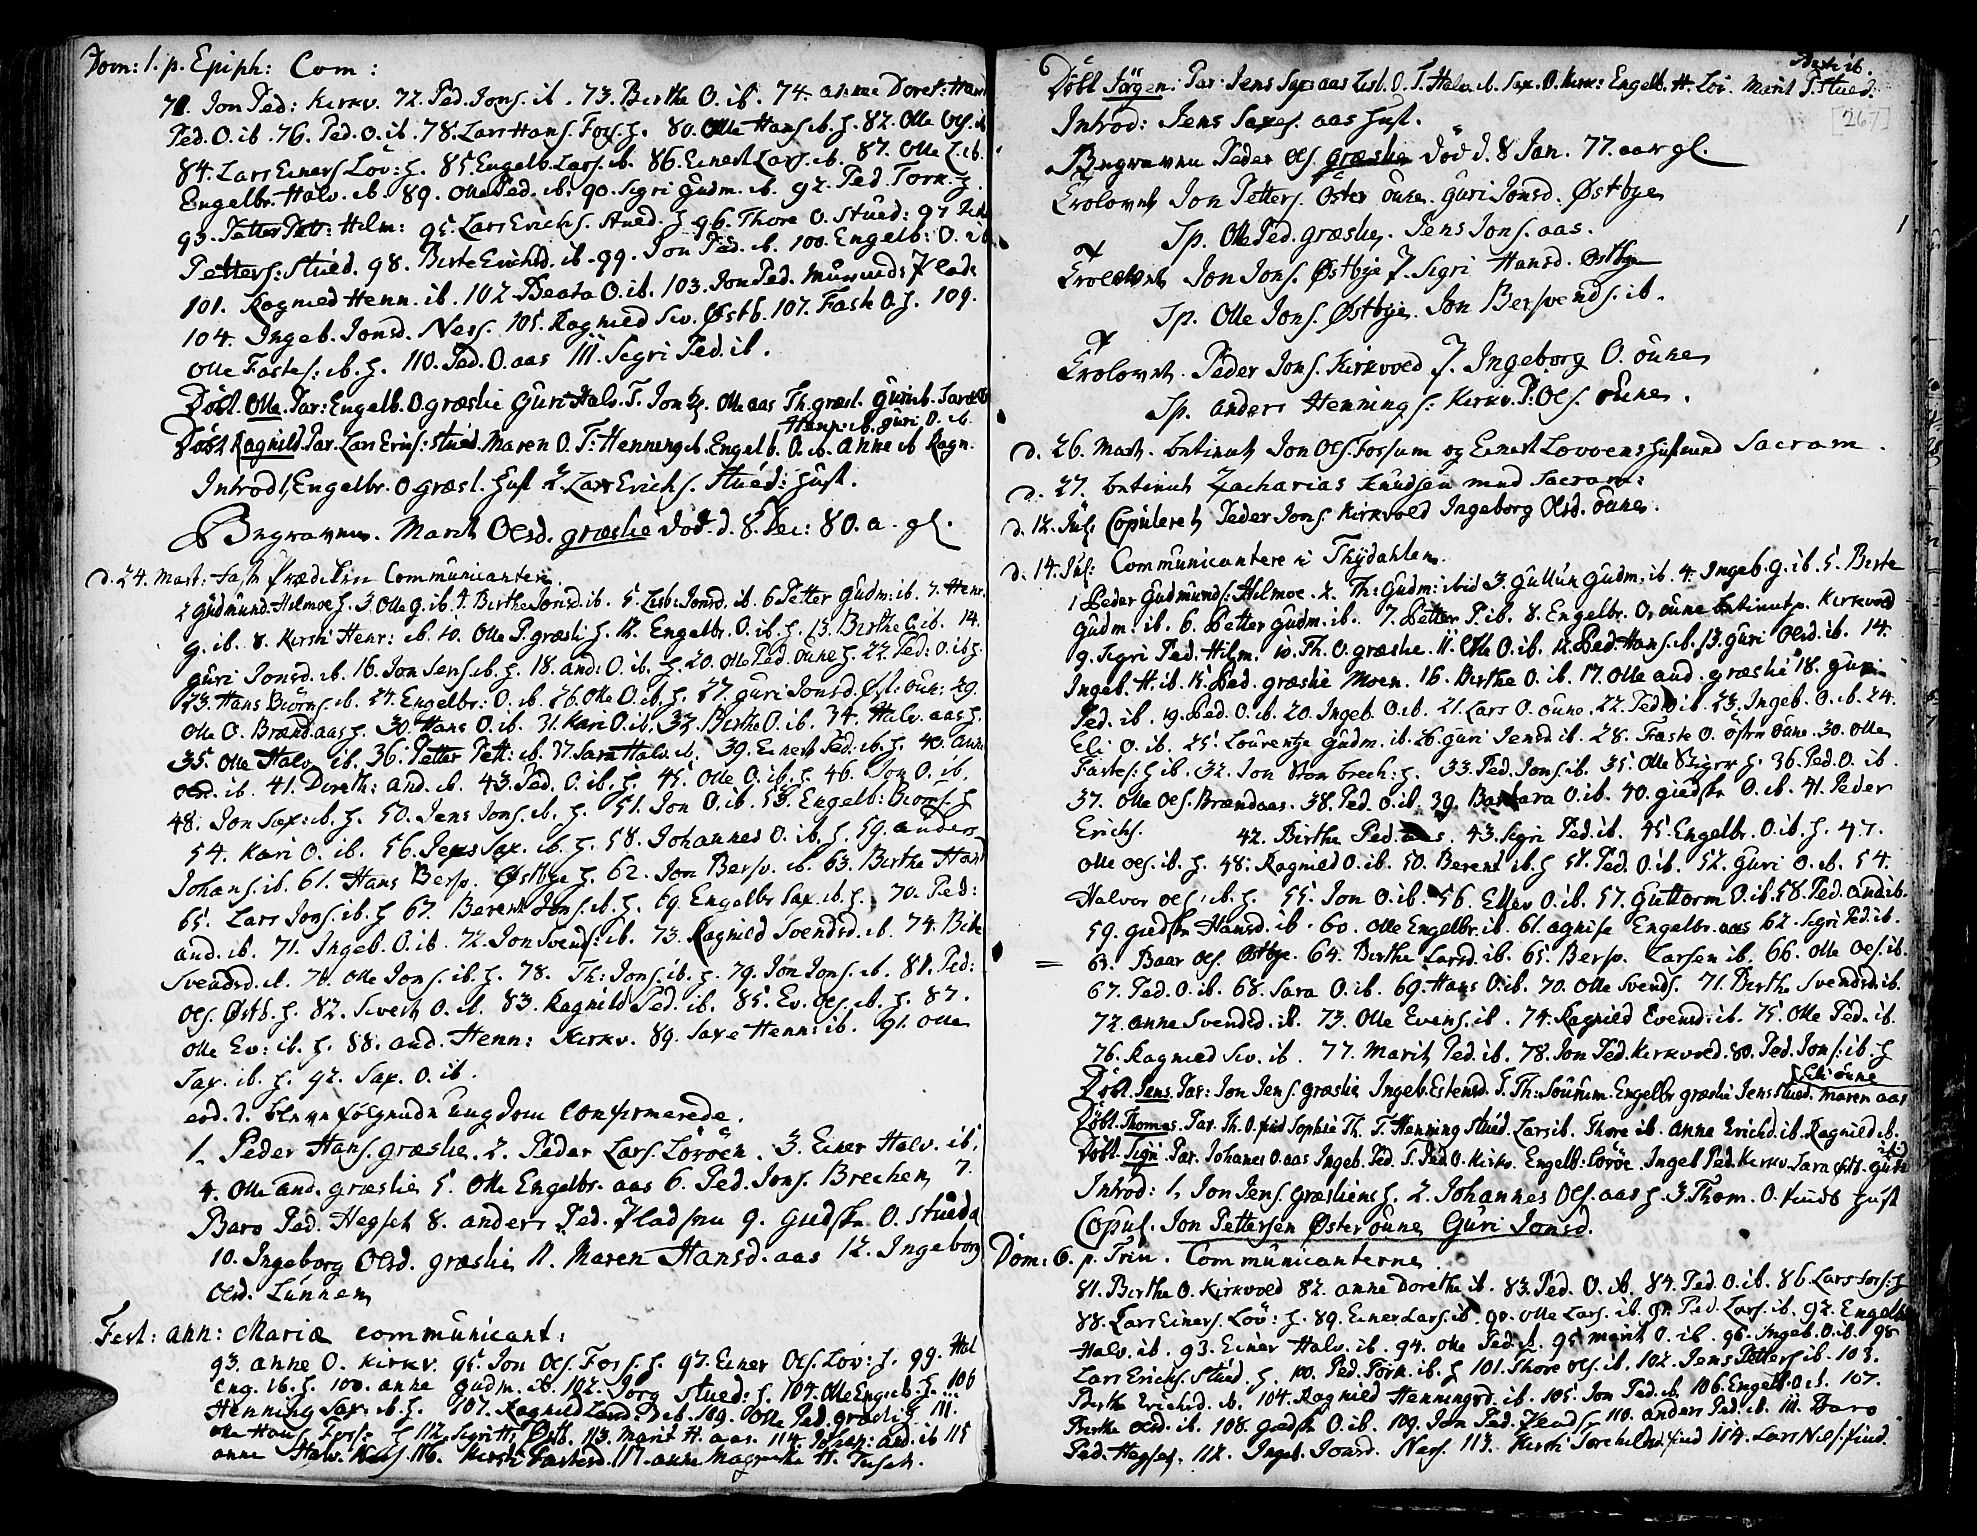 Dom: 1. p. Epiph: Com:
71. Jon Ped: Kirkv. 72. Ped. Jons. ib. 73. Birthe O. ib. 74. anne Doret: Hans
Ped. O. ib 76. Ped. O. ib. 78. Lars Hans. Fors. H. 80. Olle Hans. ib. H. 82. Olle Ols. ib
84. Lars Einers. Löv: H. 85. Engelb. Lars. ib. 86. Einert Lars. ib. 87. Olle L. ib.
Engelbr. Halv. ib 89. Olle Ped. ib. 90. Sigri Gudm. ib. 92. Ped. Tork. H.
93. Petter Pett: Hilm: 95. Lars Erichs. Stued. H 96. Thore O. Stued: 97
Petters: Stued. 98. Birte Erichsd. ib. 99. Jon Ped. ib. 100. Engelb: O. ib
101. Ragnild Henn. ib. 102 Beata O. ib. 103. Jon Ped.
104. Ingeb. Jonsd. Ness. 105. Ragnild Siv. Østb. 107. Fast O H. 109.
Olle Fastes: ib. H. 110. Ped. O. aas 111. Sigri Ped. ib.
Döbt. Olle. Par: Engelb. O. græslie Guri Halv. T. Jon Olle aas Th. græsl. Guri ib. Sara
Henn: ib. Guri O. ib
Döbt Ragnild. Par. Lars Erics: Stued. Maren O. T: Henning ib. Engelb. O. ib. Anne ib Ragn.
Introd 1, Engelbr. O græsl. Hust 2. Lars Erichs. Stued: Hust.
Begraven. Marit Olsd. græslie död. d. 8. Dec: 80. a. gl.
d. 24. Mart: Communicantere
2 Gudmund. Helmoe H. 3. Olle G. ib. 4. Birthe Jonsd. ib. 5. Lisb: Jonsd. ib. 6 Petter Gudm: ib. 7. Henr.
G. ib. 8. Kirsti Henr: ib. 10. Olle P. græsli H. 12. Engelbr. O. ib. H. 13. Birthe O. ib. 14.
Guri Jonsd. ib. 16. Jon Jens. ib. H. 18. And: O. ib. H. 20. Olle Ped. oune H. 22. Ped: O. ib H.
23. Hans Biörns. ib. 24. Engelbr: O. ib. 26. Olle O. ib. H. 27. Guri Jonsd. Øst. oun: 29.
Olle O. Brænd. aas H. 30. Hans O. ib. 31. Kari O. ib. 32. Birthe O. ib. 34. Halv. aas H.
35. Olle Halv. ib. 36. Petter Pett: ib. 37. Sara Halv. ib. 39. Einert Ped. ib. H. 40. Anne
Olsd. ib. 41. Doreth: And. ib. 43. Ped. O. ib. H. 45. Olle O. ib. H. 46. Jon O. ib.
48. Jon Sax: ib. H. 50. Jens Jons. ib. H. 51. Jon O. ib. 53. Engelb: Biörns. H
54. Kari O. ib. 56. Jens Sax. ib. H. 58. Johannes O. ib. H. 59. Anders
Johans. ib. 61. Hans Bersv. Østbye H. 62. Jon Bersv. ib. 63. Birthe Hans
65. Lars Jons. ib. H 67. Berent Jons. ib. H. 69. Engelbr Sax. ib. H. 70. Ped:
And. ib. 71. Ingeb. O. ib. 72. Jon Svends: ib. 73. Ragnild Svendsd. ib. 74. Birte
Svendsd. ib. 76. Olle Jons. ib. H. 78. Th: Jons. ib. H. 79. Jon Jons. ib. 81. Ped:
Ols. Østb. H. 82. Sivert O. ib. 83. Ragnild Ped. ib. 85. Ev. Ols. ib. H. 87.
Olle Ev: ib. H. 88. And. Henn: Kirkv. 89. Saxe Henn: ib. 91. Olle
Sax. ib. H. 92. Sax. O. ib.
eod. d. bleve fölgende Ungdom Confirmerede.
1. Peder Hans. græslie. 2. Peder Lars. Löröen. 3. Einer Halv. ib.
4. Olle And. græslie 5. Olle Engelbr. aas 6. Ped. Jons. Brechen 7.
Baro Ped. Hegset 8. Anders Ped. 9. Giedske O. Stueda
10. Ingeborg Olsd. græslie 11. Maren Hansd. aas 12. Ingeborg
Olsd. Lunnen
Fest: Ann: Mariæ communicant:
93. Anne O. Kirkv. 95. Jon Ols. Fors. H. 97. Einer Ols. Löv: H. 99. Hal
Eng. ib. H. 100. Anne Gudm. ib. 102. Jörg Stued: H. 104. Olle Eng. ib. H. 106
Henning Sax: ib. H. 107. Ragnild Land: ib. 109. Olle Ped. græsli H. 111.
Olle Hans. Fors: H 112. Sigri H. Østb. 113. Marit H. aas. 114. Johan: And. ib 115
Anne Halv. Ness. 116. Kirsti Fastesd. 117. Anne H.
Birte ib.
Döbt Jörgen. Par. Jens Sax: aas Lisb. O. T. Halv. ib. Sax. O. Kirk: Engelb. H. Löv. Marit P. Stued.
[267]
Introd: Jens Saxes. aas Hust.
Begraven Peder Ols. græslie död d. 8 Jan. 77. aar gl.
Trolovet Jon Petters. Öster oune. Guri Jonsd. Østbye
Sp. Olle Ped. græslie. Jens Jons. aas.
Trolovet Jon Jons. Østbye Sigri Hansd. Østbye
Sp. Olle Jons. Østbye. Jon Bersvends. ib.
Trolovet. Peder Jons. Kirkvold Ingeborg O. oune
Sp. Anders Hennings: Kirkv. P: Ols. oune.
d. 26. Mart. betient Jon Ols. Forsum og Einert Lovoens Sacram.
d. 27. betient Zacharias Knudsen med Sacram:
d. 12. Jul. Copuleret Peder Jons. Kirkvold Ingeborg Olsd. oune.
d. 14. Jul: Communicantere i Thydahlen
1 Peder Gudmunds: Hilmoe. 2. Th: Gudm: ibid 3. Gullun Gudm. ib. 4. Ingeb. G. ib. 5. Berte
Gudm. ib. 6. Petter Gudm. ib. 7. Petter P. ib. 8. Engelbr. O. oune betient p. Kirkvold
9. Sigri Ped. Hilm. 10. Th. O. græslie. 11. Olle O. ib. 12. Ped. Hans. ib. 13. Guri Olsd. ib. 14.
Ingeb. H. ib. 15. Ped. græslie Moen. 16. Birthe O. ib. 17. Olle And. græslie 18. Guri
Ped. ib. 19. Ped. O. ib. 20. Ingeb. O. ib. 21. Lars O. oune. 22. Ped. O. ib. 23. Ingeb. O. ib. 24.
Eli O. ib. 25. Lourentze Gudm. ib. 26. Guri Jensd. ib. 28. Faste O. öster oune. 30. Olle
Fastes: H ib. 32. Jon Stenbrech: H. 33. Ped. Jons. ib. 35. Olle H. 36. Ped. O. ib.
37. Olle Ols. Brændaas. 38. Ped. O. ib. 39. Barbara O. ib. 40. Giedske O. ib. 41. Peder
Erichs. 42. Birthe Ped. aas. 43. Sigri Ped. ib. 45. Engelbr. O. ib. H. 47.
Olle Ols. ib. H. 48. Ragnild O. ib. 50. Berent ib. H 51. Ped. O. ib. 52. Guri O. ib. 54.
Halvor Ols. ib. H. 55. Jon O. ib. 56. Ellev O. ib. 57. Guttorm O. ib. 58. Ped. And. ib.
59. Giedske Hansd. ib. 60. Olle Engelbr. ib. 61. Agnise Engelbr. aas 62. Sigri Ped. ib.
63. Baar Ols. Østbye. 64. Birthe Larsd. ib. 65. Bersv. Larsen ib. 66. Olle Ols. ib.
67. Ped. O. ib. 68. Sara O. ib. 69. Hans O. ib. 70. Olle Svends. 71. Birthe Svendsd. ib.
72. Anne Svendsd. ib. 73. Olle Evens. ib. 74. Ragnild Evensd. ib. 75. Olle Ped. ib.
76. Ragnild Siv. ib. 77. Marit Ped. ib. 78. Jon Ped. Kirkvold. 80. Ped. Jons. ib. H
Eli oune
Döbt. Jens. Par: Jon Jens. græslie Ingeb. Estensd. T. Th: Engelbr græslie Jens Stued. Maren aas
Döbt. Thomas. Par. Th. O. Sophie Th. T. Henning Stued. Lars ib. Thore ib. Anne Erichsd. ib. Ragnild ib.
Döbt. Sigri Par. Johanes O. aas Ingeb. Ped. T. Ped. O. Kirkv. Engelb. Löröe. Ingeb. Ped. Kirkv. Sara
Introd: 1. Jon Jens. græsliens H. 2. Johannes Ols. aas H. 3. Thom. O. Hust
Copul. Jon Pettersen Øster oune Guri Jonsd.
Dom: 6. p. Trin. Communicanterne
81. Birthe O. Kirkvold 82. Anne Dorethe ib. 83. Ped. O. ib. 84. Ped. O. ib. 86. Lars Fors. H
88. Lars Einers. Löv: H. 89. Einer Lars. ib. 90. Olle Lars. ib. 91. Ped. Lars. ib. 92. Engelbr
Halv. ib. 93. Einer Halv. ib. 94. Olle Ped. ib. 95 Marit O. ib. 96. Ingeb. O. ib. 98
Lars Erichs. Stued. H. 100. Ped. Tork. ib. H 101. Thore Ols. ib. 102. Jens Petters. ib. 103.
Birthe Erichsd. ib. 104. Ragnild Henningsd. ib. 105. Jon Ped. ib. 106. Engelb. O. ib. 107.
Birthe Olsd. ib. 108. Giedske O. ib. 109. Jon Ped. 110. Anders Ped. ib. 111. Baro
Ped. Hegset. 112. Ingeb. Jonsd. Ness. 113. Kirsti 114. Lars Niels.